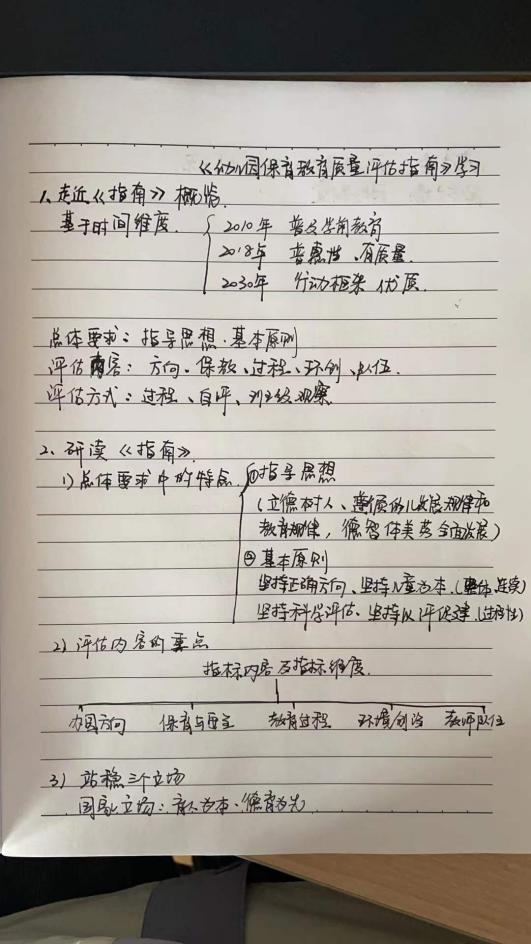 《幼儿园保育教育质量评估指南》学习
1、走近《指南》概览
基于时间维度 2010年 普及学前教育
2018年 普惠性、有质量
2030年 行动框架 优质
总体要求：指导思想、基本原则
评估内容：方向、保教、过程、环创、队伍.
评估方式：过程、自评、班级观察
2、研读《指南》
1）总体要求中的特点 ①指导思想
（立德树人、遵循幼儿发展规律和
教育规律，德智体美劳全面发展）
②基本原则
坚持正确方向、坚持儿童为本（整体、连续）
坚持科学评估、坚持以评促建（过程性）
2）评估内容的重点
指标内容及指标维度
办园方向 保育与安全 教育过程 环境创设 教师队伍
3）站稳三个立场
国家立场：育人为本、德育为先